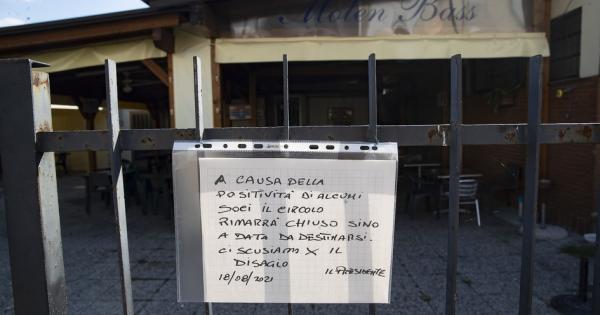 Molen Bass
A CAUSA DELLA
POSITIVITÀ DI ALCUNI
SOCI IL CIRCOLO
RIMARRÀ CHIUSO SINO
A DATA DA DESTINARSI.
CI SCUSIAM X IL
DISAGIO
IL PRESIDENTE
18/08/2021